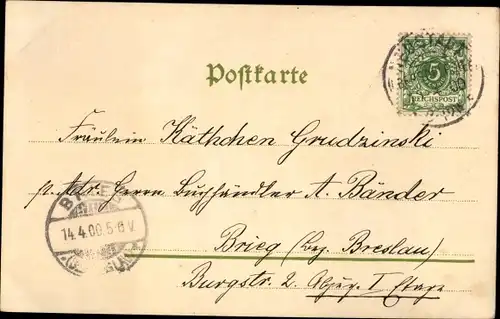 Postkarte
5
REICHSPOST
Fräulein Käthchen Grudzinski
p. Adr. Herrn Buchhändler A. Bänder
Brieg (bez. Breslau)
Burgstr. 2. I Etage
14.4.00.5-6V.